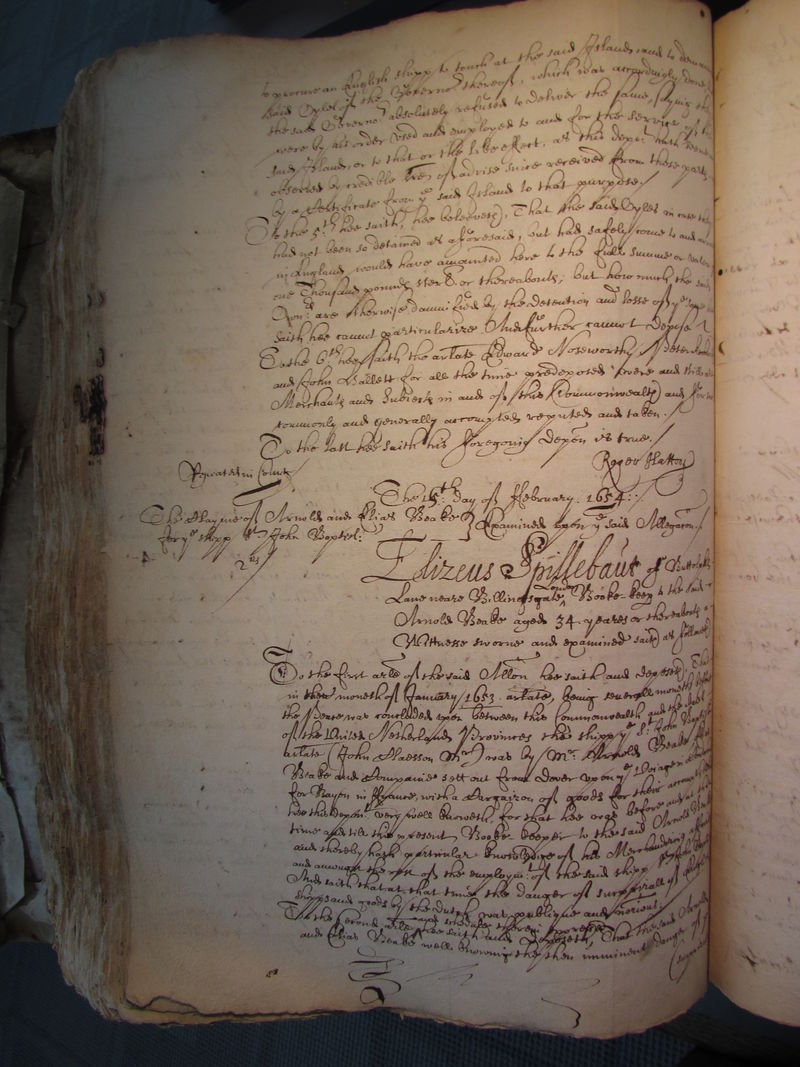 to procure an English shipp to touch at the said Island, and to demand
said Oyles of the Governo:r thereof, which was accordingly done
the said Governo:r absolutely refused to deliver the same, saying they
were by his order used and employed to and for the service of the
said Island, or to that or the like effect, as this depo:t hath
observed by credible l:res of advise since received from those parts
by a Certificate from y:e said Island to that purpose./
To the 5:th hee saith, hee beleeveth, That the said Oyles in case they
had not been so detained as aforesaid, but had safely come to and
in England would have amounted here to the full summe or value
one Thousand pounds sterl: or thereabouts; but how much the said
are otherwise damnified by the detention and losse of y:e same
saith hee cannot particularize. And further cannot depose
To the 6:th hee saith the ar:late Edward Noseworthy, Peter
and John Ballett for all the time predeposed were and
Merchants and Subjects in and of this Commonwealth and for
commonly and generally accompted reputed and taken./
To the last hee saith his foregoing depo:n is true./
Repeated in Court
Roger Hatton
The 15:th day of February. 1654:/
The Clayme of Arnold and Elias Beake
for y:e shipp S:t John Baptist:
Examined upon y:e said Allegacon./
2:us
Elizeus Spillebaut of Buttolphs
Lane neare Billingsgate Booke keep:r to the said
Arnold Beake aged 34 yeares or thereabouts a
Wittnesse sworne and examined saith as followeth
To the first ar:le of the said Allon hee saith and deposeth, That
in the moneth of January 1653. ar:late, being severall moneths before
the Peace was concluded upon betweene this Commonwealth and the
of the United Netherland Provinces the shipp y:e S:t John Baptist
ar:late (John Claesson M:r) was by M:r Arnold Beake
Beake and Companie sett out from Dover upon y:e voyage
for Bayon in France, with a Cargaizon of goods for their accompt
hee this depon:t very well knoweth, for that hee was before and at that
time and till this present Booke keeper to the said Arnold Beake
and thereby hath particular knowledge of his Merchandizing affaires
and amongst the rest of the employm:t of the said shipp
And saith that at that time the danger of surprizall of
shipps and goods by the dutch was publique and notorious.
To the second ar:le hee saith and deposeth, That the said Arnold
and Elias Beake well knowing the then imminent danger of